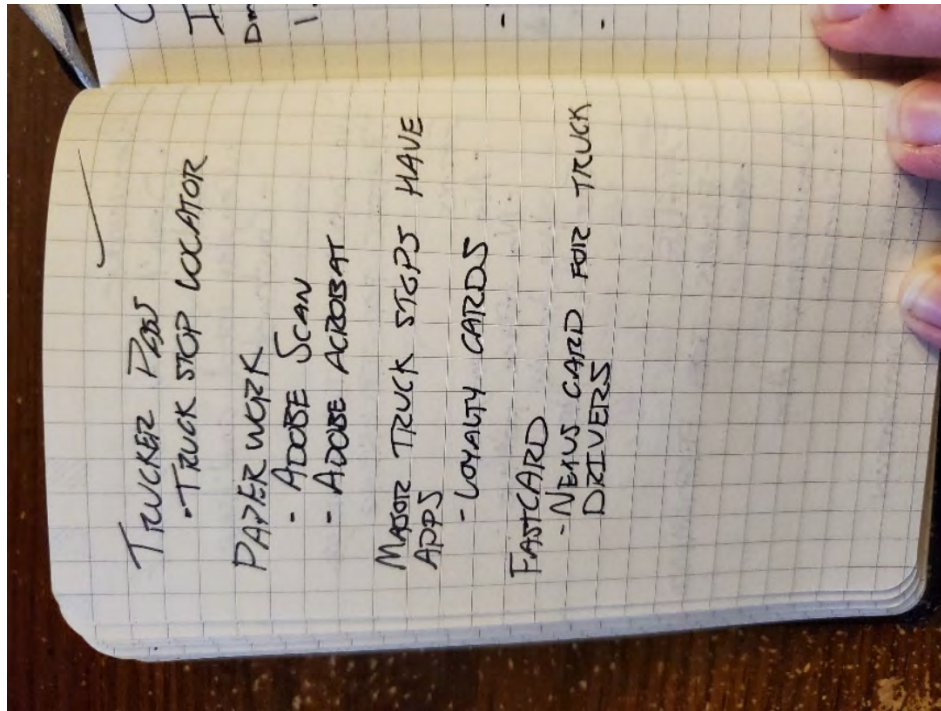 TRUCKER PAWS
- TRUCK STOP LOCATOR
PAPERWORK
- ADOBE SCAN
- ADOBE ACROBAT
MAJOR TRUCK STOPS HAVE
APPS
- LOYALTY CARDS
FASTCARD
- NEXUS CARD FOR TRUCK
DRIVERS